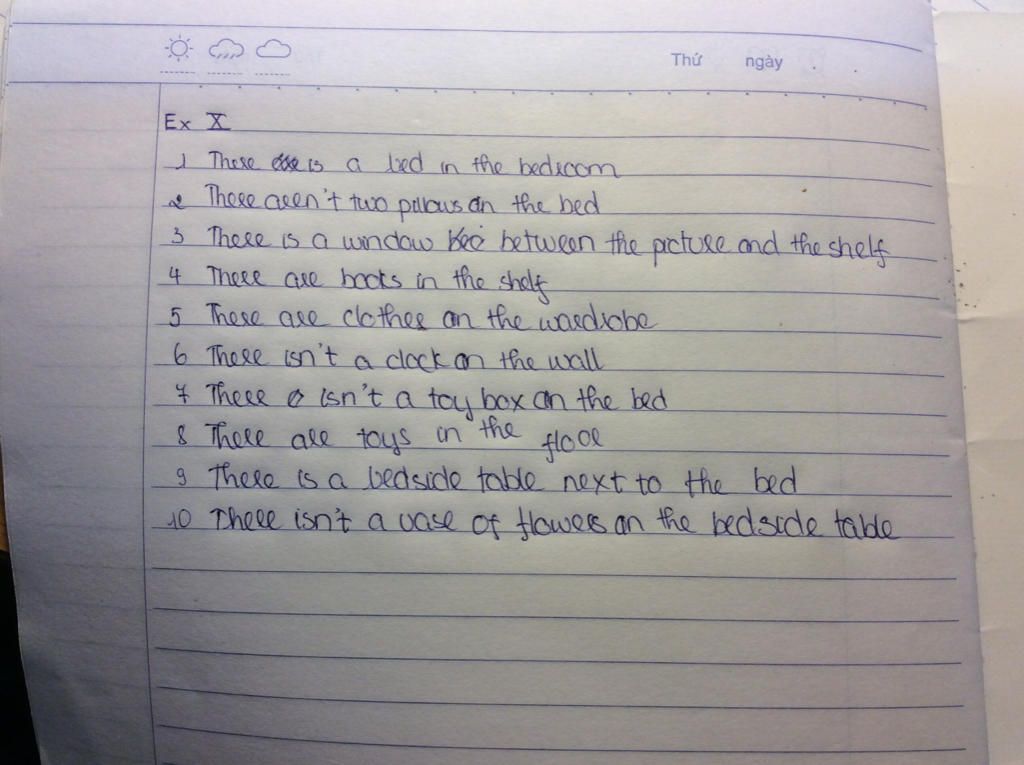 Thứ ngày . .
Ex X
1 There is a bed in the bedroom
2 There aren't two pilows on the bed
3 There is a window between the picture and the shelf
4 There are books in the shelf
5 There are clothes on the wardrobe
6 There isn't a clock on the wall
7 There isn't a toy box on the bed
8 There are toys in the floor
9 There is a bedside table next to the bed
10 There isn't a vase of flowers on the bedside table